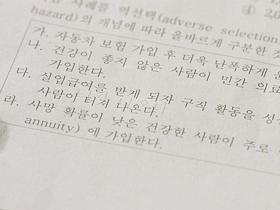 사례를 역선택(adverse selection
hazard)의 개념에 따라 올바르게 구분한 것
가. 자동차 보험 가입 후 더욱 난폭하게 운
나. 건강이 좋지 않은 사람이 민간 의료
가입한다.
다. 실업급여를 받게 되자 구직 활동을 성
사람이 터져 나온다.
라. 사망 확률이 낮은 건강한 사람이 주로
annuity) 에 가입한다.